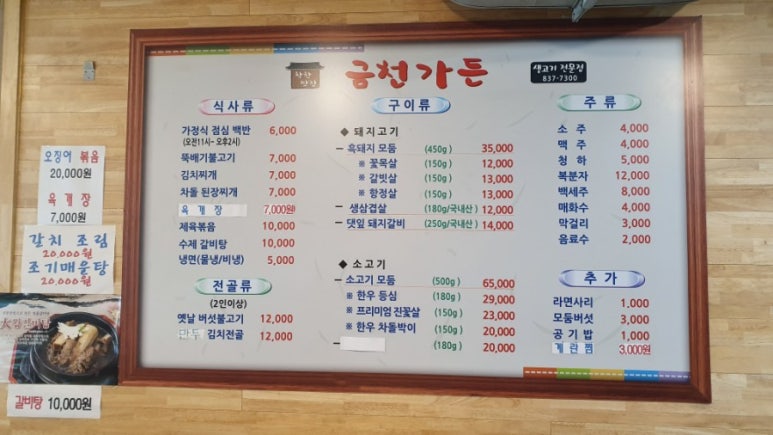 참한
맛집
금천가든
생고기 전문점
837-7300
식사류
가정식 점심 백반 6,000
(오전11시~오후2시)
뚝배기불고기 7,000
김치찌개 7,000
차돌 된장찌개 7,000
육개장 7,000원
제육볶음 10,000
수제 갈비탕 10,000
냉면(물냉/비냉) 5,000
전골류
(2인이상)
옛날 버섯불고기 12,000
만두 김치전골 12,000
구이류
◆ 돼지고기
흑돼지 모듬 (450g) 35,000
※ 꽃목살 (150g) 12,000
※ 갈빗살 (150g) 13,000
※ 항정살 (150g) 13,000
생삼겹살 (180g/국내산) 12,000
댓잎 돼지갈비 (250g/국내산) 14,000
◆ 소고기
소고기 모듬 (500g) 65,000
※ 한우 등심 (180g) 29,000
※ 프리미엄 진꽃살 (150g) 23,000
※ 한우 차돌박이 (150g) 20,000
(180g) 20,000
주류
소주 4,000
맥주 4,000
청하 5,000
복분자 12,000
백세주 8,000
매화수 4,000
막걸리 3,000
음료수 2,000
추가
라면사리 1,000
모둠버섯 3,000
공기밥 1,000
계란찜 3,000원
오징어 볶음
20,000원
육개장
7,000원
갈치 조림
20,000원
조기매운탕
20,000원
갈비탕 10,000원